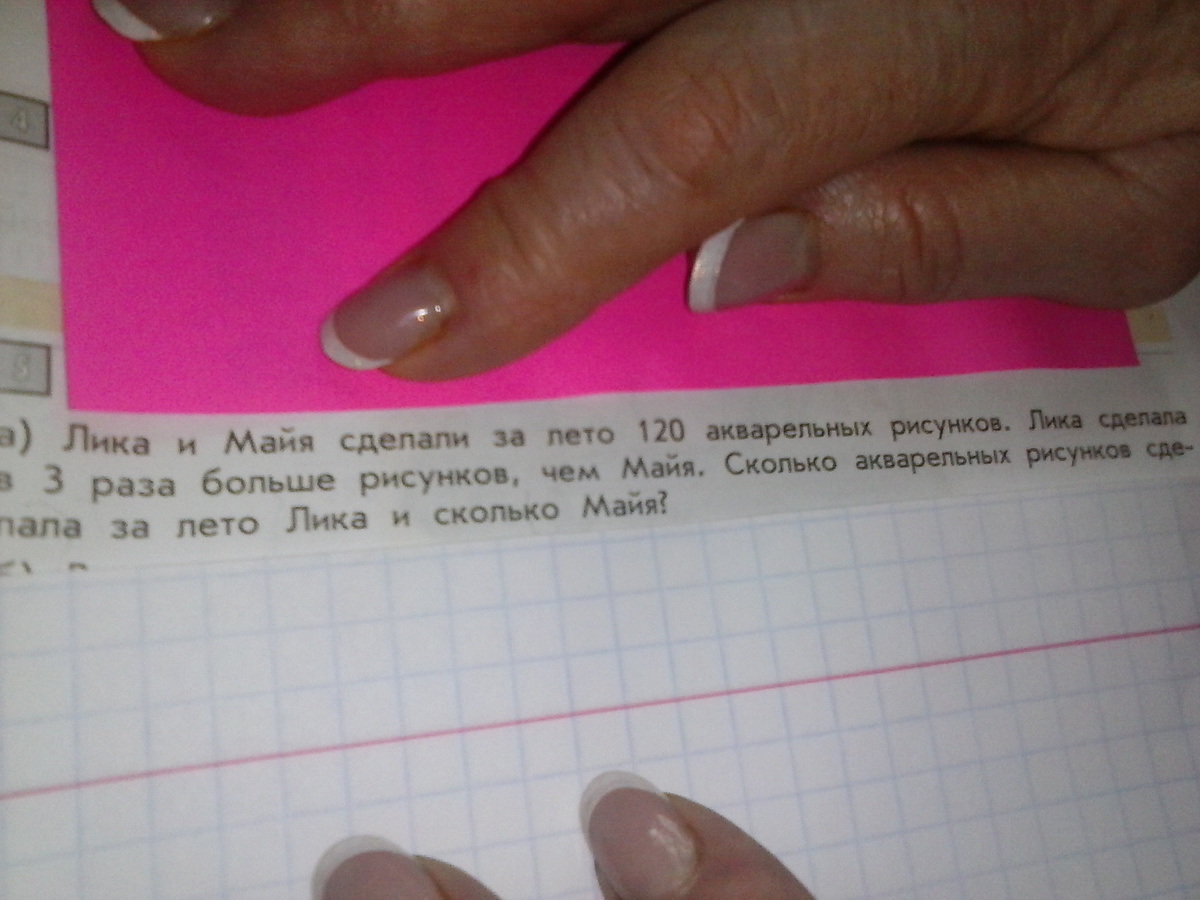 4
5
а) Лика и Майя сделали за лето 120 акварельных рисунков. Лика сделала
в 3 раза больше рисунков, чем Майя. Сколько акварельных рисунков сде-
лала за лето Лика и сколько Майя?